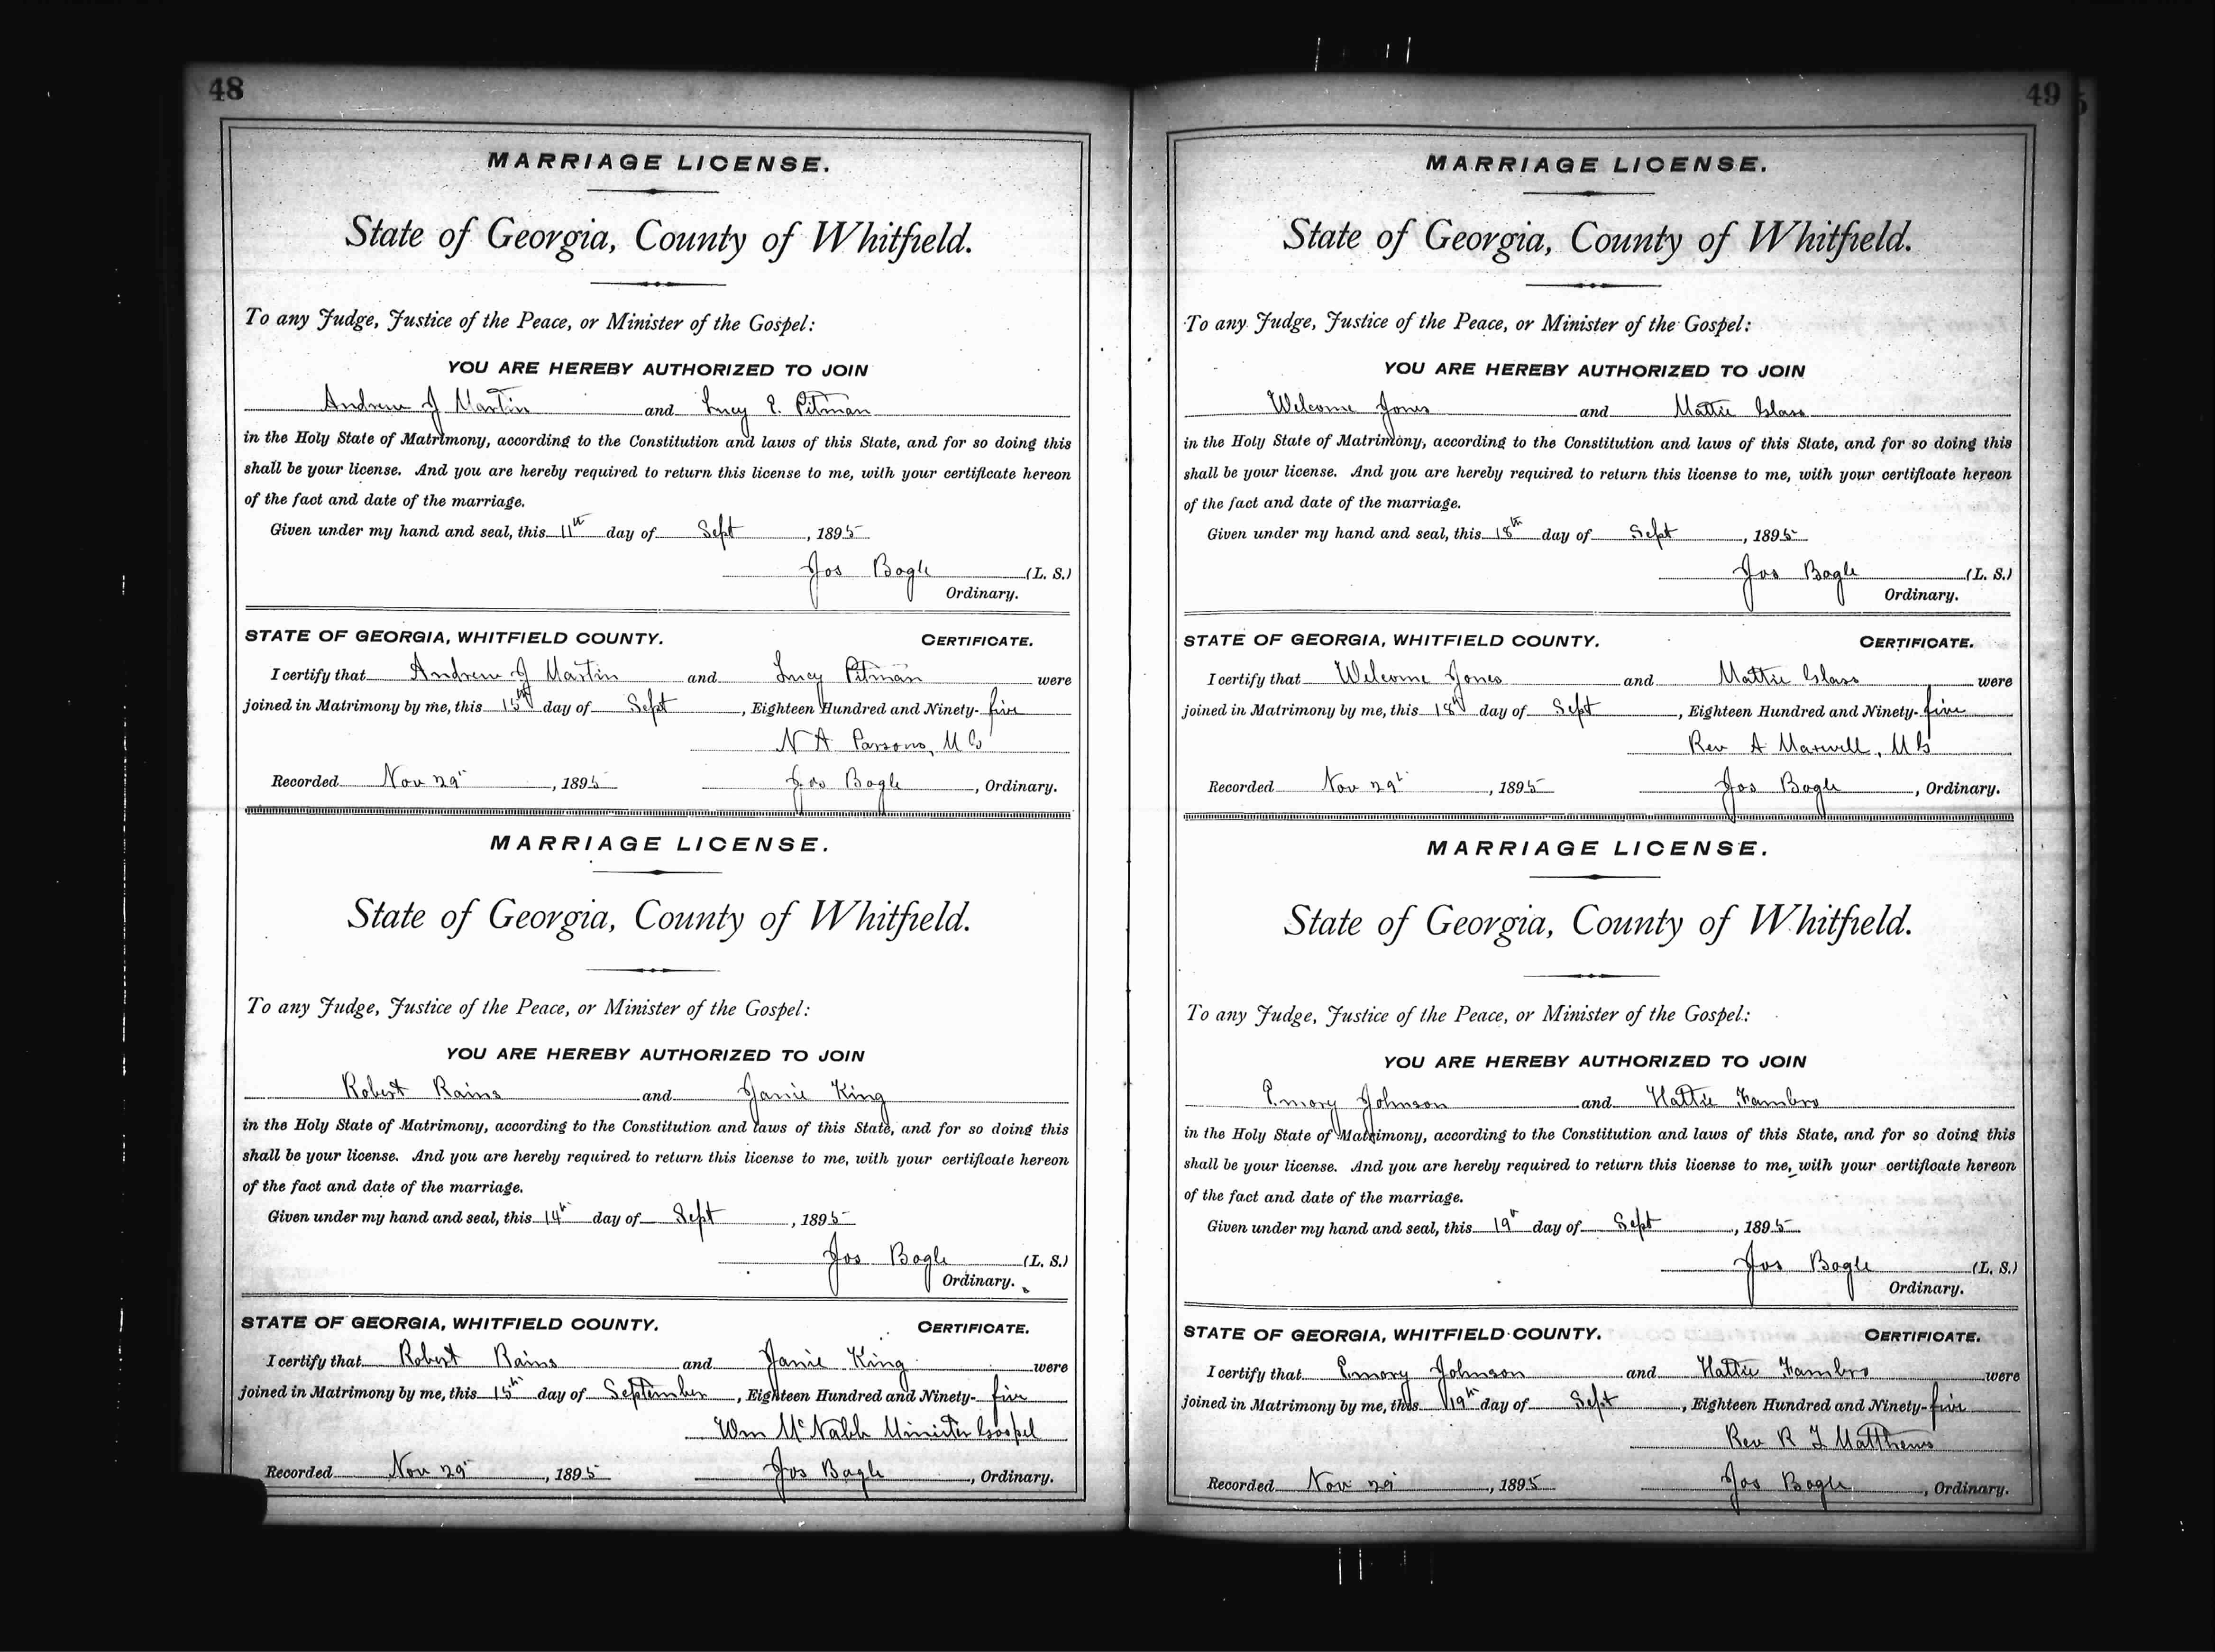 48
MARRIAGE LICENSE.
State of Georgia, County of Whitfield.
To any Judge, Justice of the Peace, or Minister of the Gospel:
YOU ARE HEREBY AUTHORIZED TO JOIN
Andrew J Martin and Lucy E. Pitman
in the Holy State of Matrimony, according to the Constitution and laws of this State, and for so doing this
shall be your license. And you are hereby required to return this license to me, with your certificate hereon
of the fact and date of the marriage.
Given under my hand and seal, this 11th day of Sept, 1895
Jos Bogle (L. S.)
Ordinary.
STATE OF GEORGIA, WHITFIELD COUNTY. CERTIFICATE.
I certify that Andrew J Martin and Lucy Pitman were
joined in Matrimony by me, this 15th day of Sept, Eighteen Hundred and Ninety-five
N A Parsons, M G
Recorded Nov 29th, 1895 Jos Bogle, Ordinary.
MARRIAGE LICENSE.
State of Georgia, County of Whitfield.
To any Judge, Justice of the Peace, or Minister of the Gospel:
YOU ARE HEREBY AUTHORIZED TO JOIN
Robert Rains and Janie King
in the Holy State of Matrimony, according to the Constitution and laws of this State, and for so doing this
shall be your license. And you are hereby required to return this license to me, with your certificate hereon
of the fact and date of the marriage.
Given under my hand and seal, this 14th day of Sept, 1895
Jos Bogle (L. S.)
Ordinary.
STATE OF GEORGIA, WHITFIELD COUNTY. CERTIFICATE.
I certify that Robert Rains and Janie King were
joined in Matrimony by me, this 15th day of September, Eighteen Hundred and Ninety-five
Wm McNabb Minister Gospel
Recorded Nov 29, 1895 Jos Bogle, Ordinary.
49
MARRIAGE LICENSE.
State of Georgia, County of Whitfield.
To any Judge, Justice of the Peace, or Minister of the Gospel:
YOU ARE HEREBY AUTHORIZED TO JOIN
Welcome Jones and Mattie Glass
in the Holy State of Matrimony, according to the Constitution and laws of this State, and for so doing this
shall be your license. And you are hereby required to return this license to me, with your certificate hereon
of the fact and date of the marriage.
Given under my hand and seal, this 18th day of Sept, 1895
Jos Bogle (L. S.)
Ordinary.
STATE OF GEORGIA, WHITFIELD COUNTY. CERTIFICATE.
I certify that Welcome Jones and Mattie Glass were
joined in Matrimony by me, this 18th day of Sept, Eighteen Hundred and Ninety-five
Rev A Maxwell, M G
Recorded Nov 29th, 1895 Jos Bogle, Ordinary.
MARRIAGE LICENSE.
State of Georgia, County of Whitfield.
To any Judge, Justice of the Peace, or Minister of the Gospel:
YOU ARE HEREBY AUTHORIZED TO JOIN
Emory Johnson and Hattie Fambro
in the Holy State of Matrimony, according to the Constitution and laws of this State, and for so doing this
shall be your license. And you are hereby required to return this license to me, with your certificate hereon
of the fact and date of the marriage.
Given under my hand and seal, this 19th day of Sept, 1895
Jos Bogle (L. S.)
Ordinary.
STATE OF GEORGIA, WHITFIELD COUNTY. CERTIFICATE.
I certify that Emory Johnson and Hattie Fambro were
joined in Matrimony by me, this 19th day of Sept, Eighteen Hundred and Ninety-five
Rev R J Matthews
Recorded Nov 29, 1895 Jos Bogle, Ordinary.